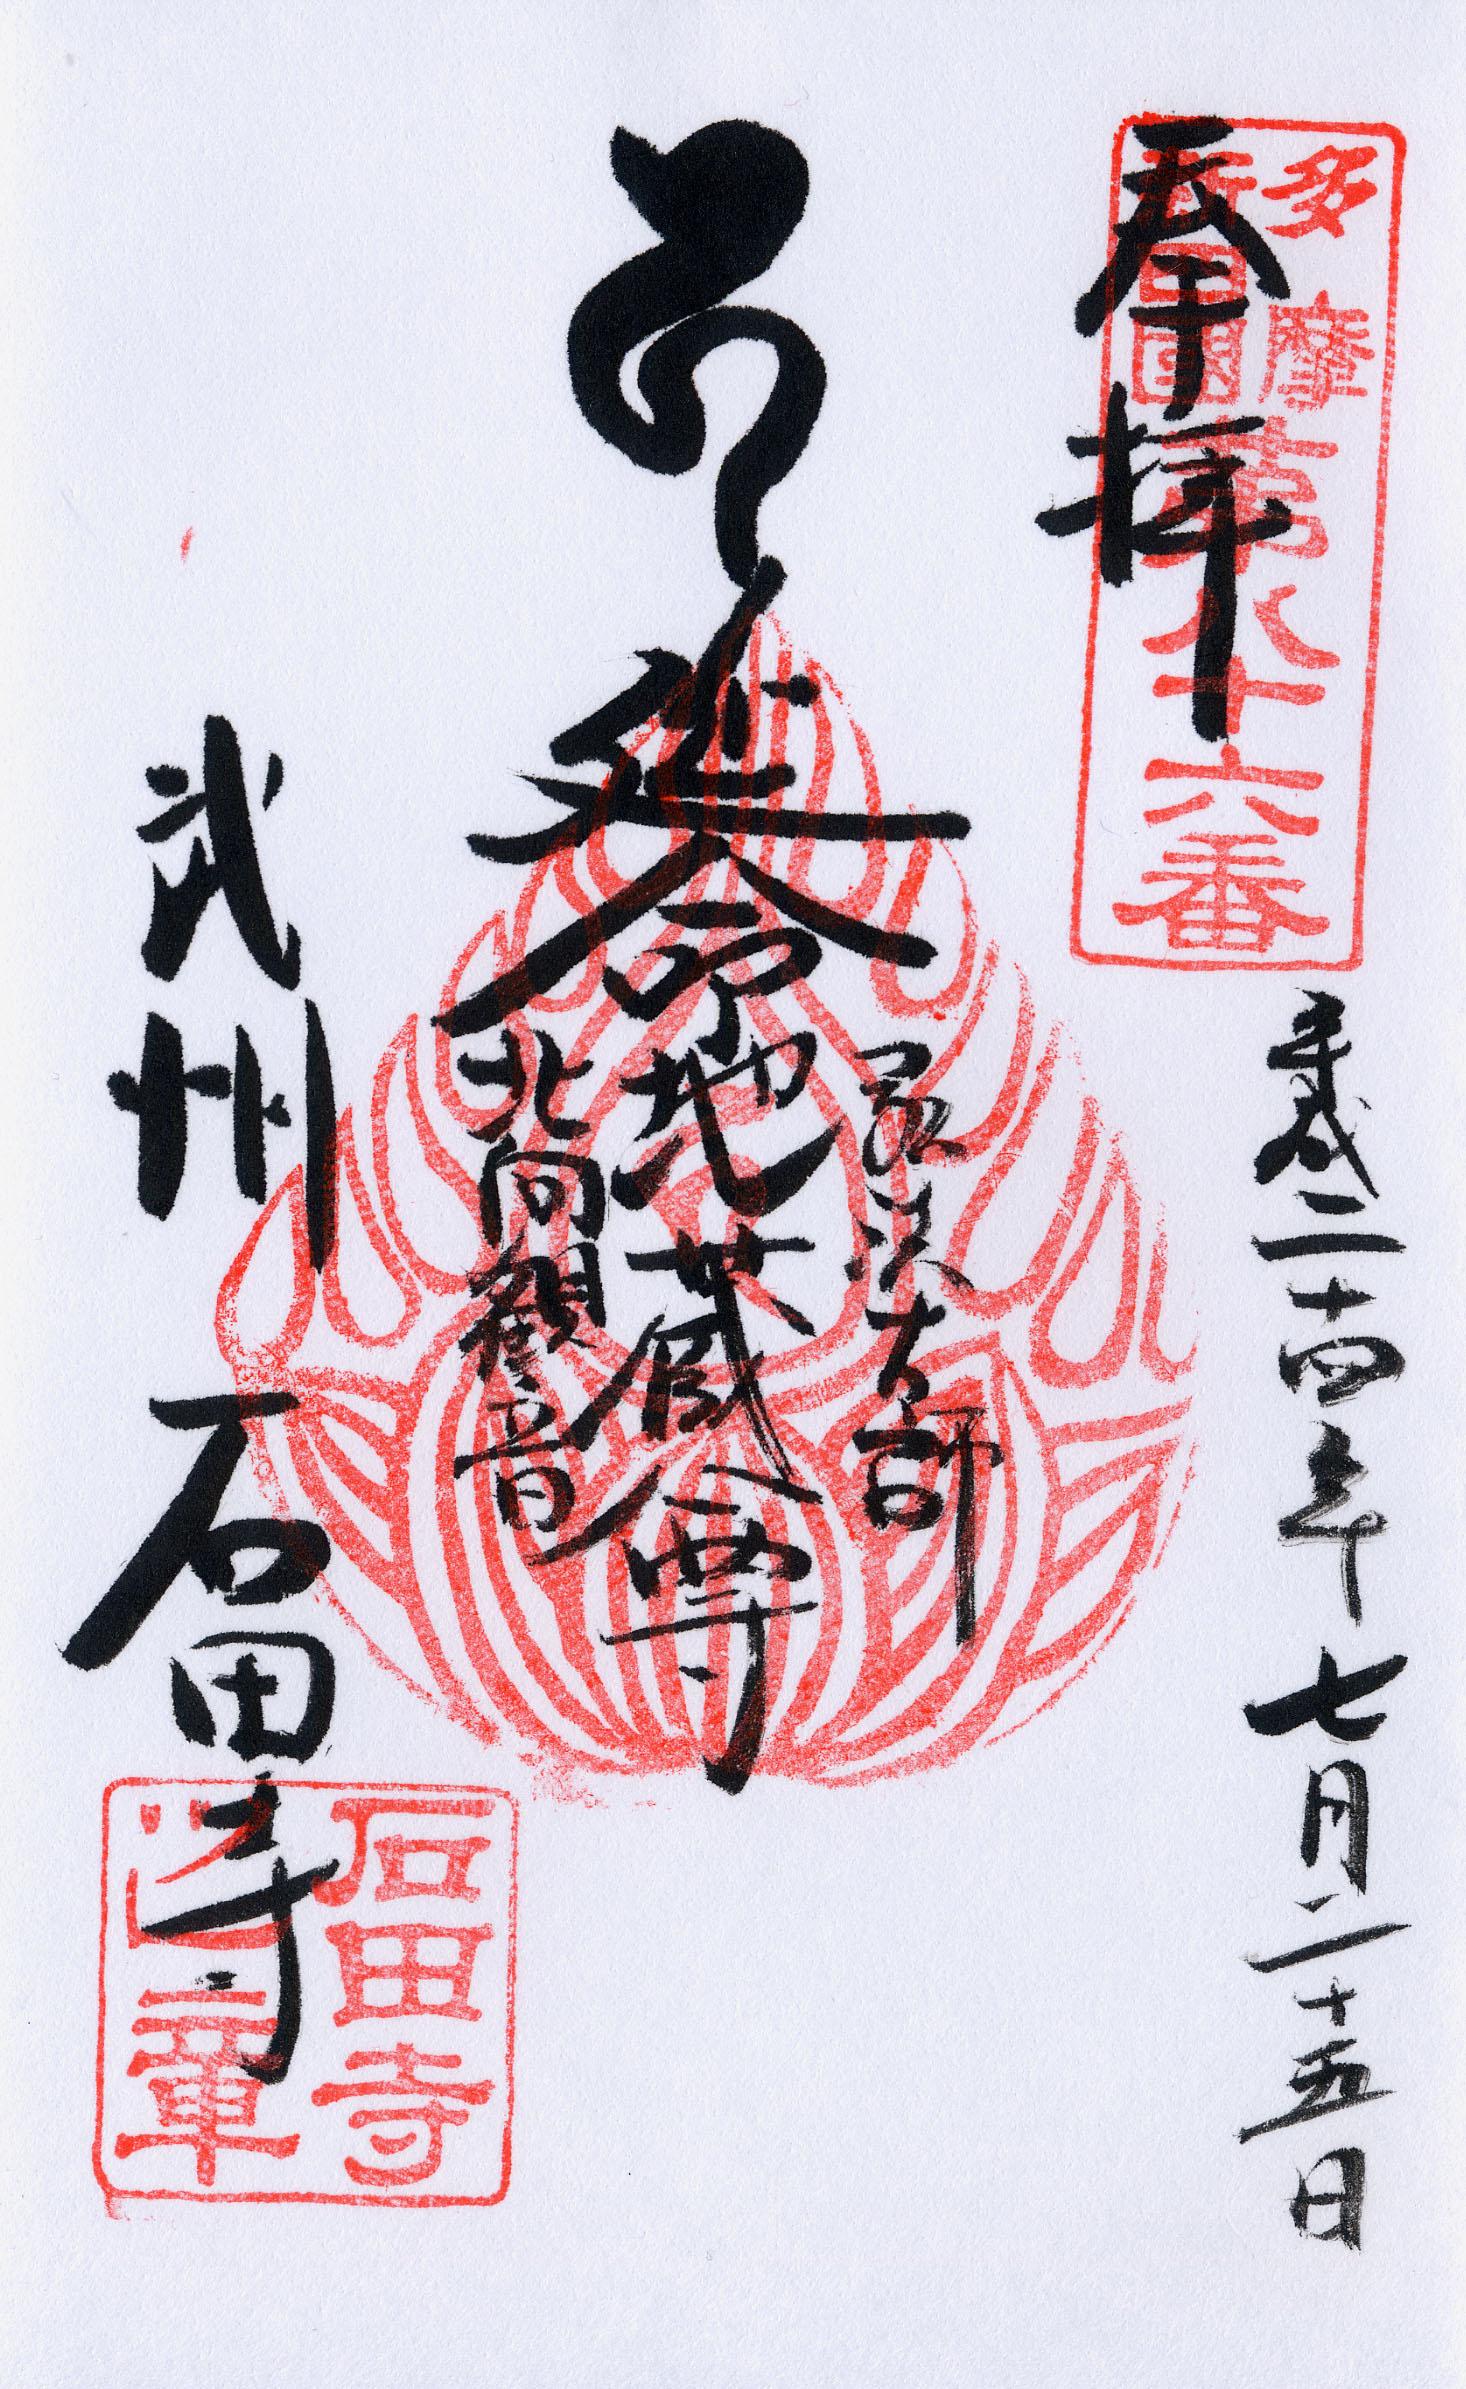 奉拝
多摩
新四國
第八十六番
平成二十四年七月二十五日
弘法大師
延命地蔵尊
北向観音
武州 石田寺
石田寺
之章